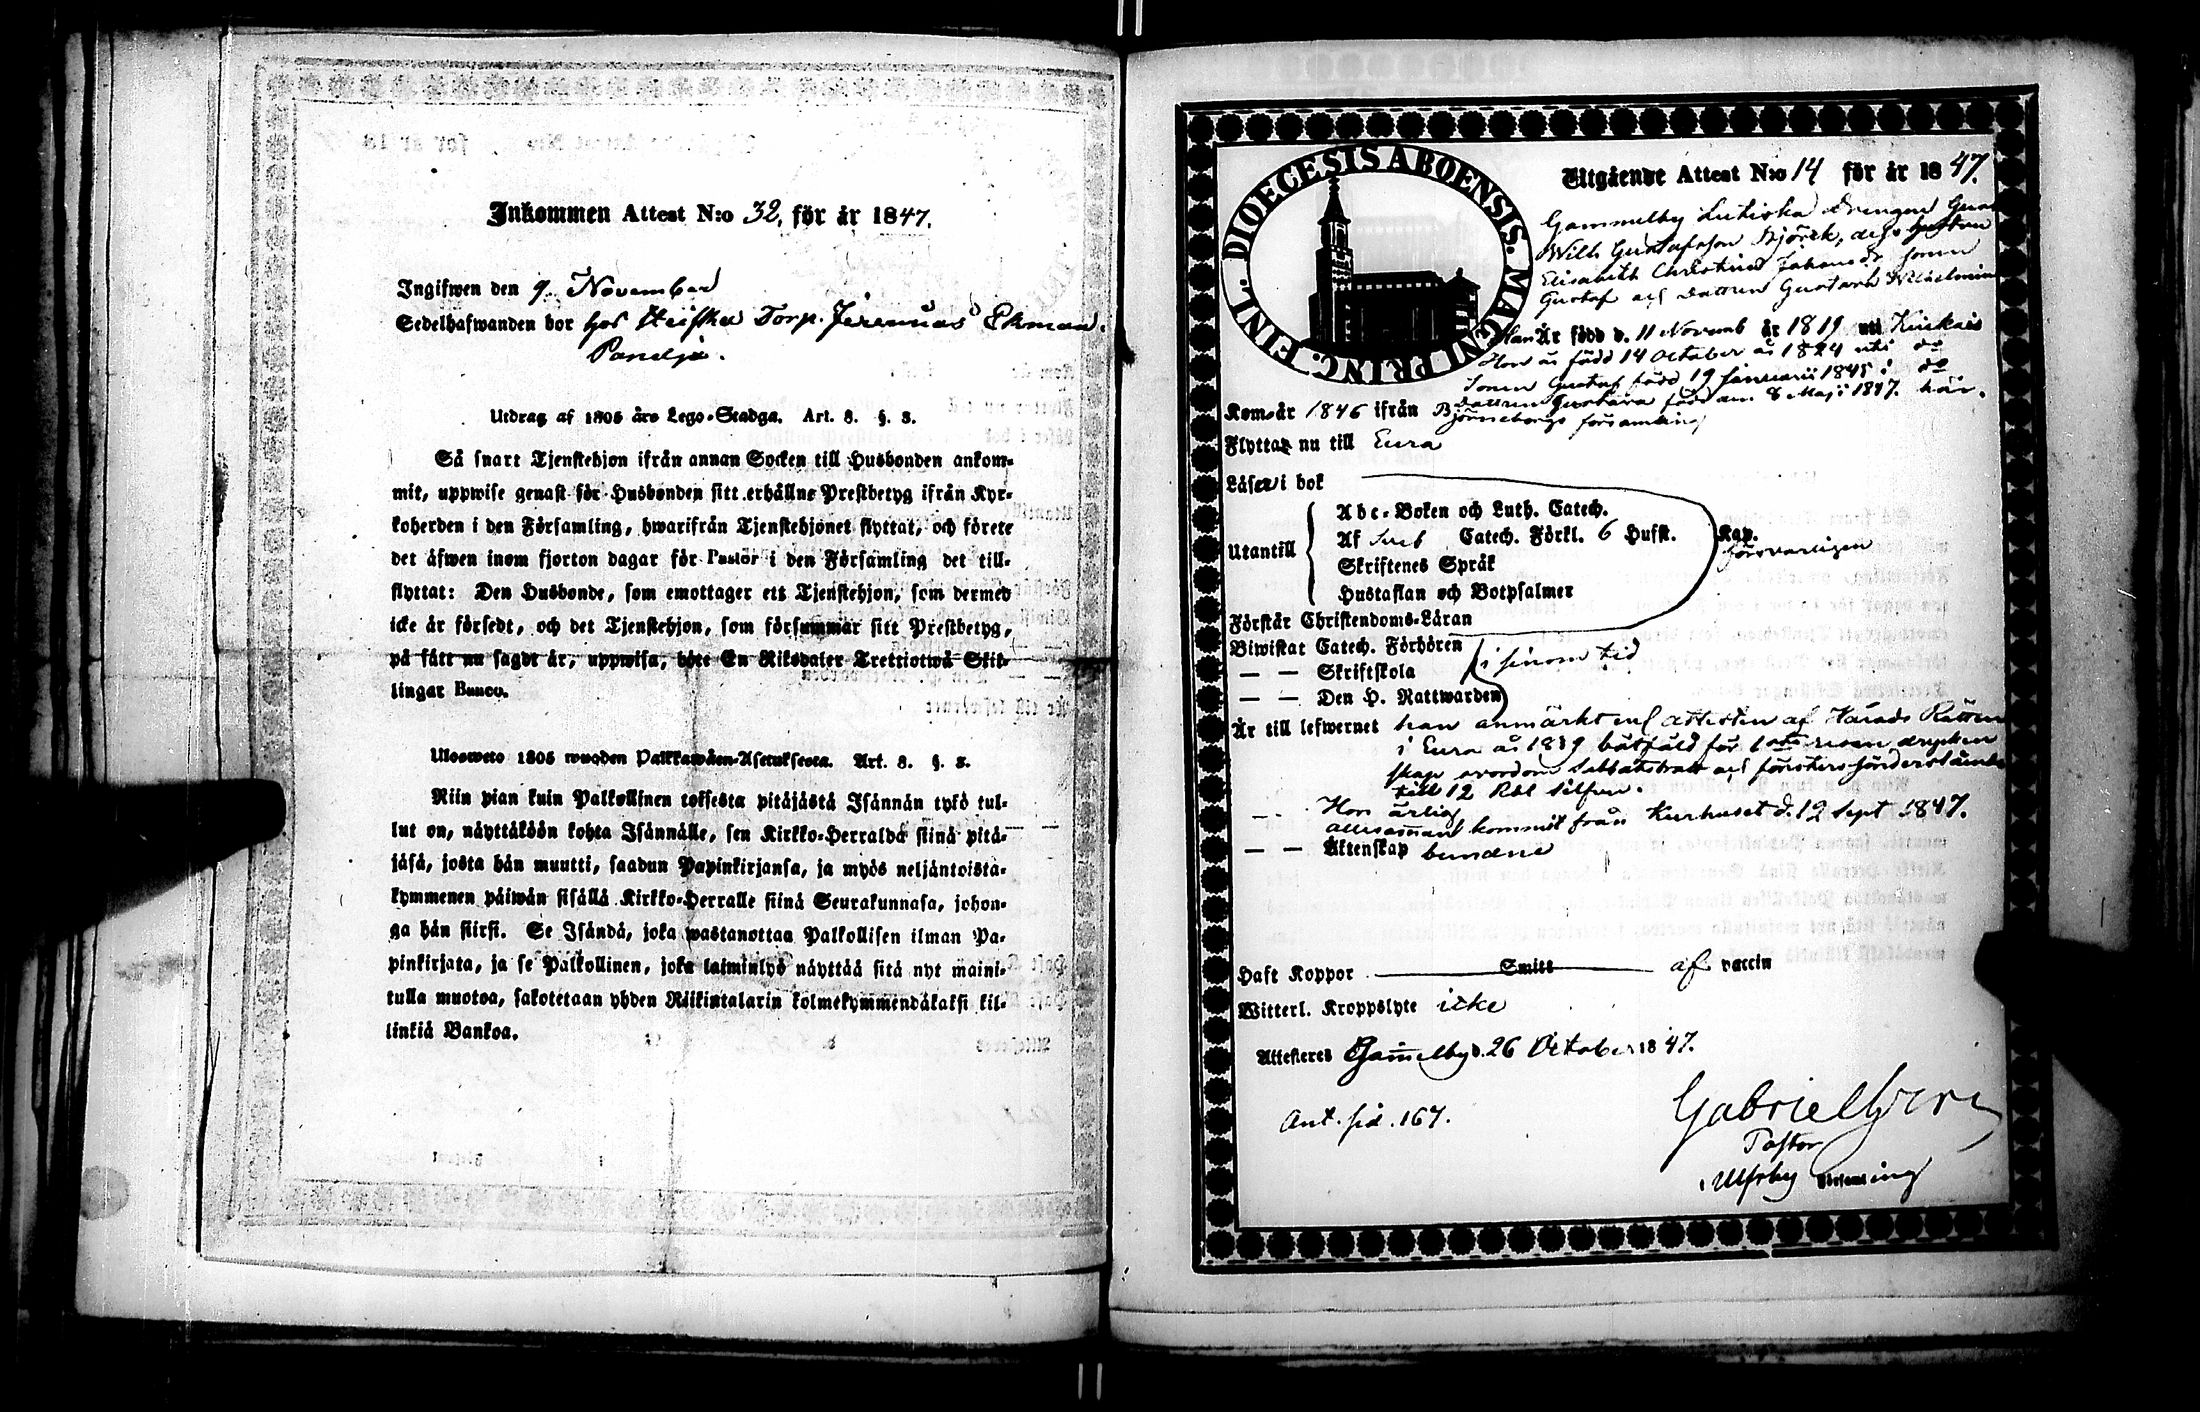 Inkommen Attest N:o 32, för år 1847.
Ingifwen den 9. November
Sedelhafwanden bor hos Torp. Jeremias Ekman.
Panelja.
Utdrag af 1805 års Lego-Stadga. Art. 8. §. 3.
Så snart Tjenstehjon ifrån annan Socken till Husbonden ankom-
mit, uppwise genast för Husbonden sitt erhållne Prestbetyg ifrån Kyr-
koherden i den Församling, hwarifrån Tjenstehjonet flyttat, och förete
det äfwen inom fjorton dagar för Pastor i den Församling det till-
flyttat: Den Husbonde, som emottager ett Tjenstehjon, som dermed
icke är försedt, och det Tjenstehjon, som försummar sitt Prestbetyg,
på sätt nu sagdt är, uppwisa, böte En Riksdaler Trettiotwå Skil-
lingar Banco.
Ulosweto 1805 wuoden Palkkawäen-Asetuksesta. Art. 8. §. 3.
Niin pian kuin Palkollinen toisesta pitäjästä Isännän tykö tul-
lut on, näyttäköön kohta Isännälle, sen Kirkko-Herralda siinä pitä-
jäsä, josta hän muutti, saadun Papinkirjansa, ja myös neljäntoista-
kymmenen päiwän sisällä Kirkko-Herralle siinä Seurakunnasa, johon-
ga hän siirsi. Se Isändä, joka wastanottaa Palkollisen ilman Pa-
pinkirjata, ja se Palkollinen, joka laiminlyö näyttää sitä nyt maini-
tulla muotoa, sakotetaan yhden Riikintalarin kolmekymmendäkaksi kil-
linkiä Bankoa.
DIOECESIS ABOENSIS. MAGNI PRINC. FINL.
Utgående Attest N:o 14 för år 1847.
Gammelby Lutiska Drengen Gust
Wilh Gustafsson Björck, dess hustru
Elisabeth Christina Johansdr sonen
Gustaf och dottren Gustava Wilhelmina
Han Är född d. 11 Novemb år 1819 uti Kiukais
Hon är född 14 October år 1824 uti do
Sonen Gustaf född 19 Januarii 1845 i do
Dottren Gustava född den 8 Maji 1847. här.
Kom år 1846 ifrån Björneborgs församling
Flyttar nu till Eura
Läser i bok
Utantill
Abc-Boken och Luth. Catech.
Af Catech. Förkl. 6 Hufst. Kap.
försvarligen
Skriftenes Språk
Hustaflan och Botpsalmer
Förstår Christendoms-Läran
Biwistat Catech. Förhören
— — Skriftskola i sinom tid
— — Den H. Nattwarden
Är till lefwernet han anmärkt enl attesten af Härads Rätten
i Eura år 1839 bötfäld för 1sta resan drycken
skap svordom sabbatsbrott och fönsters sönderslående
till 12 Rbl silfver.
— Hon ärlig
allesamman kommit från Kurhuset d. 12 Sept 1847.
— — Äktenskap bundne
Haft Koppor — Smitt — af vaccin
Witterl. Kroppslyte icke
Attesteres Gammelby d. 26 October 1847.
Gabriel
Ant. sid. 167.
Pastor
i Ulfsby Församling